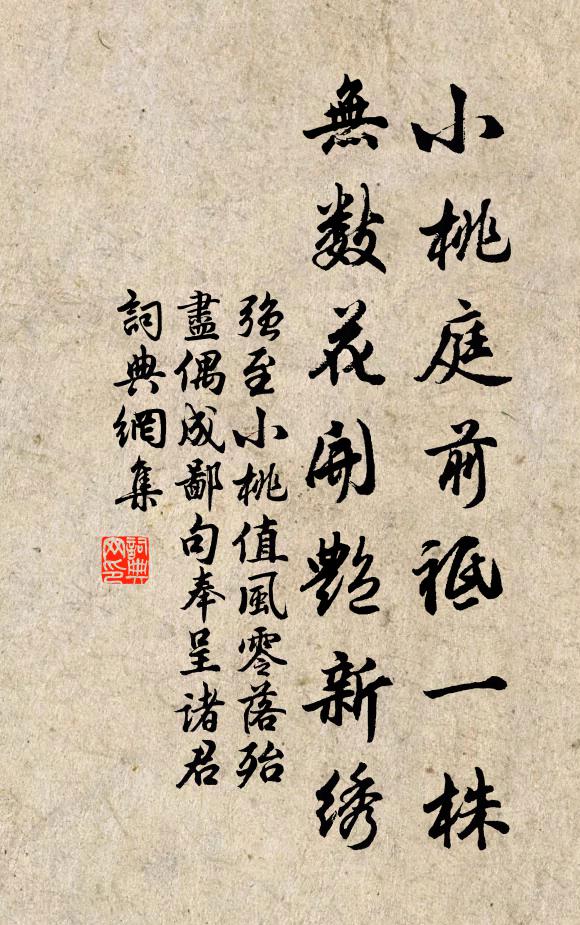 小桃庭前祗一株
無数花開艷新绣
強至小桃值風零落殆
盡偶成鄙句奉呈諸君
詞典網集
詞典
网印